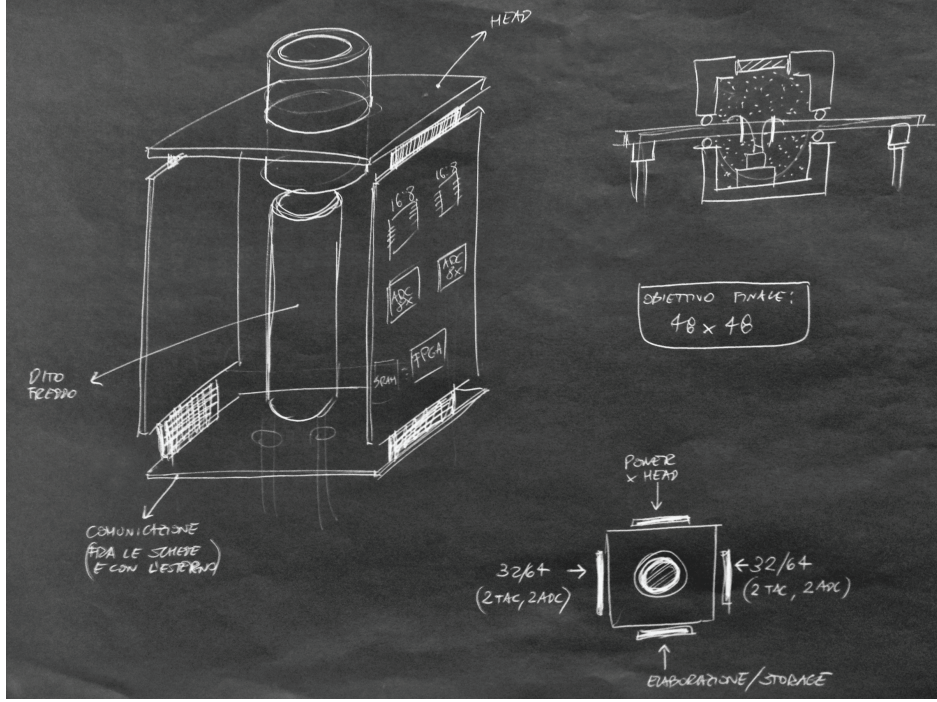 HEAD
16:8
16:8
ADC
8X
ADC
8X
SRAM
FPGA
DITO
FREDDO
COMUNICAZIONE
(FRA LE SCHEDE
E CON L'ESTERNO)
OBIETTIVO FINALE:
48 x 48
POWER
x HEAD
32/64
(2 TAC, 2 ADC)
32/64
(2 TAC, 2 ADC)
ELABORAZIONE/STORAGE